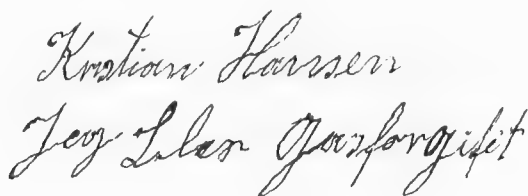 Kristian Hansen
Jeg Blev gasforgifit